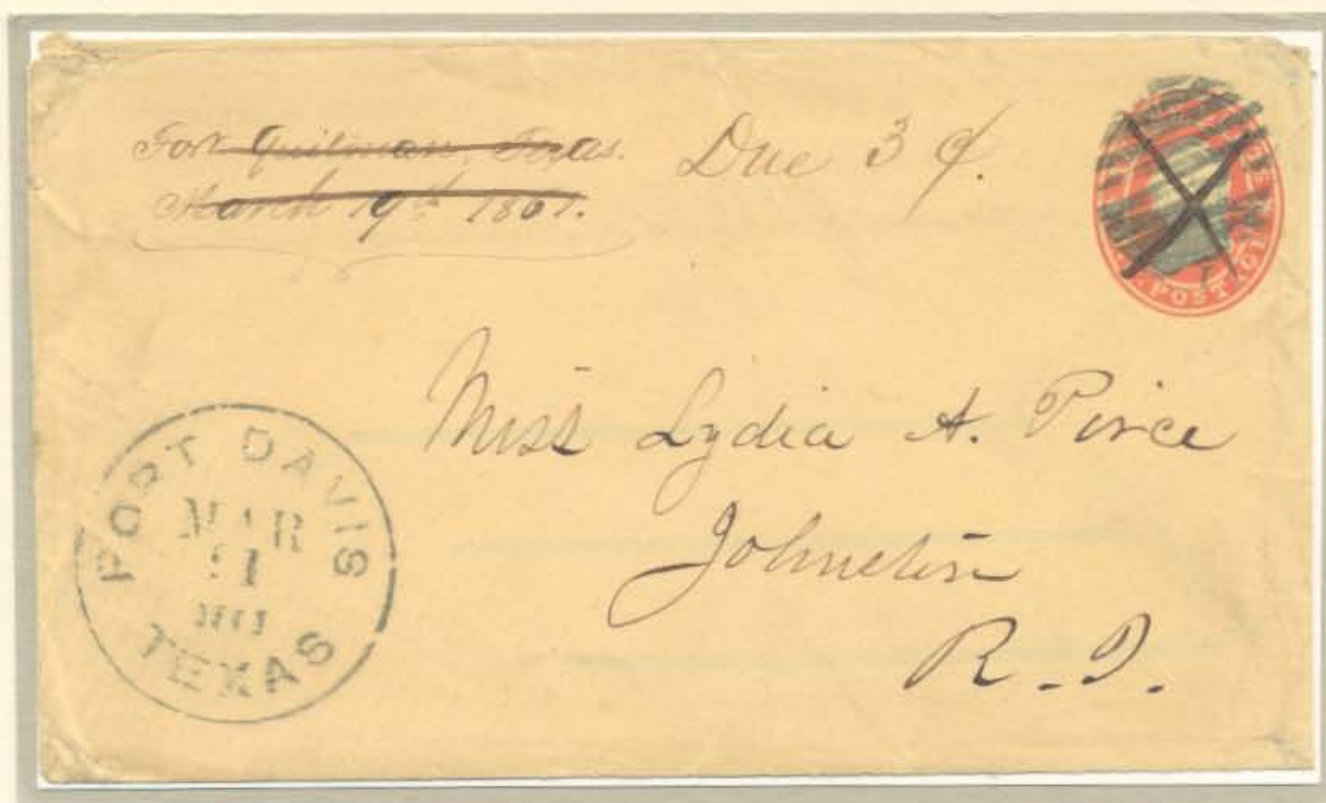 Fort Quitman, Texas.
March 19th 1861.
Due 3 ¢.
POSTAGE
Miss Lydia A. Pirce
Johnston
R. I.
FORT DAVIS
MAR
TEXAS